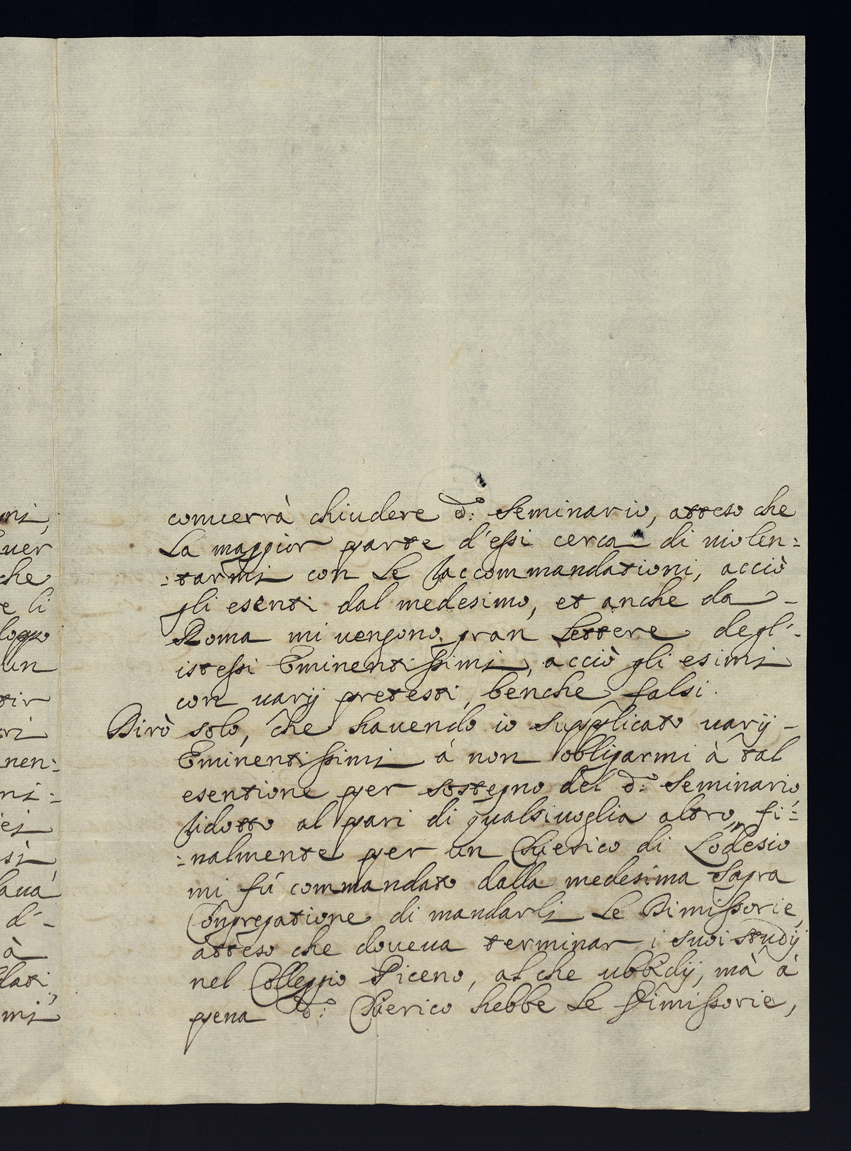 oni,
uer
che
re li
loggo
un
tir
ri
nen:
ni:
ej
si
laua
d'-
à
lati,
mi
conuerrà chiudere d.º Seminario, atteso che
la maggior parte d'essi cerca di uiolen:
:tarmi con le raccommandationi, acciò
gli esenti dal medesimo, et anche da -
Roma mi uengono gran lettere degl'-
istessi Eminentissimi, acciò gli esimi
con varij pretesti, benche falsi.
Dirò solo, che hauendo io supplicato varij -
Eminentissimi à non obligarmi à tal
esentione per sostegno del d.º Seminario
ridotto al pari di qualsiuoglia altro, fi:
:nalmente per un Chierico di Lodesio
mi fù commandato dalla medesima Sagra
Congregatione di mandarli le Dimissorie,
atteso che doueua terminar i suoi studij
nel Colleggio Piceno, al che ubbidij, mà à
pena d.º Chierico hebbe le Dimissorie,